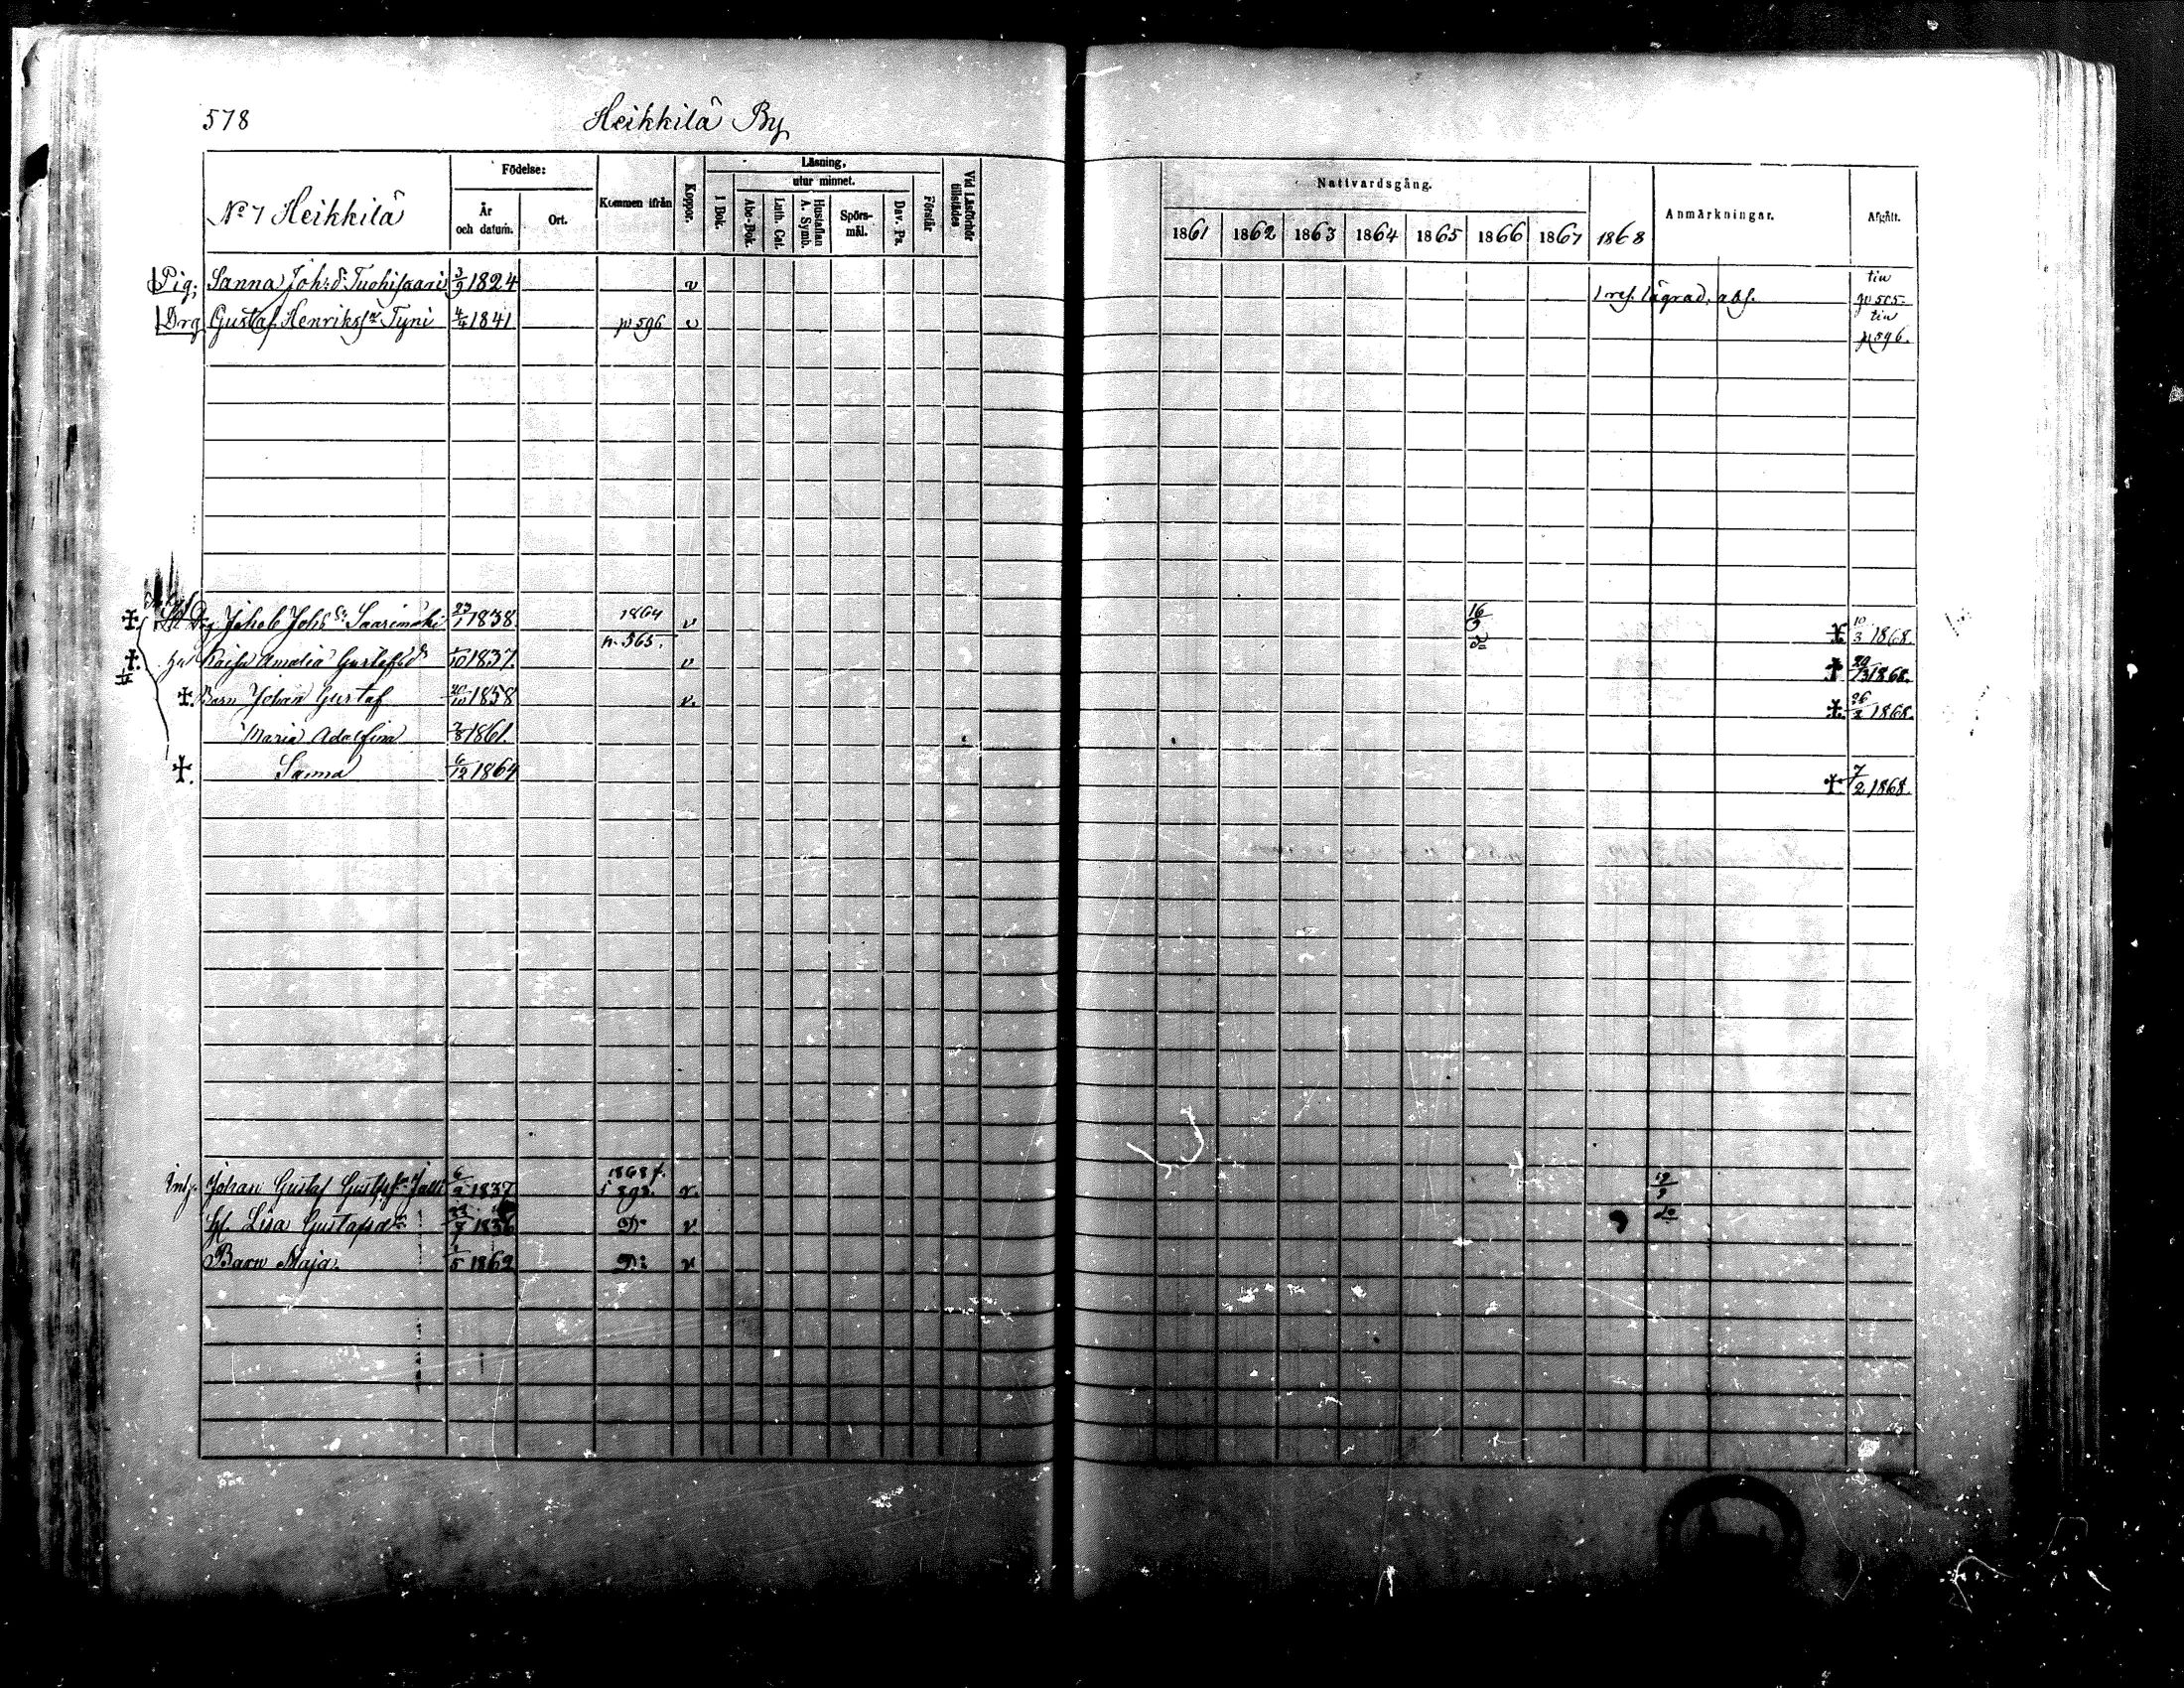 578
Heikkilä By
No 7 Heikkilä
Födelse:
År och datum.
Ort.
Kommen ifrån
Koppor.
Läsning,
utur minnet.
I Bok.
Abc-Bok.
Luth. Cat.
Hustaflan A. Symb.
Spörsmål.
Dav. Ps.
Förstår
Vid Läsförhör tillstädes
Nattvardsgång.
1861 1862 1863 1864 1865 1866 1867 1868
Anmärkningar.
Afgått.
Pig. Sanna Joh:d: Tuohisaari 3/9 1824 v abs. tin
Drg Gustaf Henrikss:n Tyni 4/4 1841 p 596 v tin p 596.
Drg Jakob Johs Sn Saarimäki 23/1 1838. 1864 p. 565. v 16/9 ‡ 10/3 1868.
Kaisa Amalia Gustafsd:r 1/10 1837. v do ‡ 1868.
‡. Barn Johan Gustaf 20/10 1858 v. ‡. 26/2 1868.
Maria Adolfina 7/8 1861.
‡. Sanna 6/12 1864 ‡. 7/2 1868.
Inh. Johan Gustaf 6/2 1837 1868 f. v. 19/9
H. Lisa Gustafsd:r 1836 D:o v. do
Barn Maja. 1/5 1862 D:o v